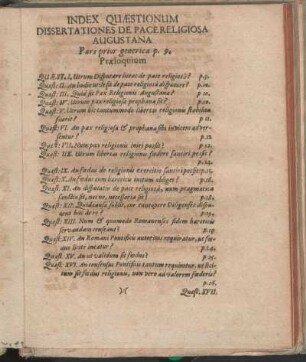 INDEX QUÆSTIONUM
DISSERTATIONES DE PACE RELIGIOSA
AUGUSTANA
Pars prior generica p. 9.
Præloquium
QUÆST. I. Utrum Disputare liceat de pace religios? p.9.
Quæst: II. An hodie utile sit de pace religiosa disputare? p.10.
Quæst: III. Quid sit Pax Religionis Augustana? p.10.
Quæst: IV. Utrum pax religiosa prophana sit? p.10.
Quæst: V. Utrum hic tantummodo libertas religionis stabilita fuerit? p.11.
Quæst: VI. An pax religiosa & prophana sibi invicem adversentur? p.12.
Quæst: VII. Num pax religionis iniri possit? p.12.
Quæst: IIX. Utrum libertas religionis fœdere sanciri possit?
p.14.
Quæst: IX. An fœdus de religionis exercitio sanciri possit? p.15.
Quæst: X. An fœdus cum hæreticis initum obliget? p.16.
Quæst: XI. An disputatio de pace religiosa, num pragmatica sanctio sit, nec ne, necessaria sit?
Quæst: XII. Quidnam sit, cur tantopere Diligentes disquirunt hac de re?
Quæst: XIII. Num & quomodo Romanenses fidem hæreticis servandam censeant? p.19.
Quæst: XIV. An Romani Pontificis autoritas requiratur, ut fœdus licite ineatur?
Quæst: XV. An ut validum sit fœdus? p.25.
Quæst: XVI. An consensus Pontificis tantum requiratur, ut licitum sit fœdus religionis, non vero ad valorem fœderis?
p.26.
Quæst: XVII.